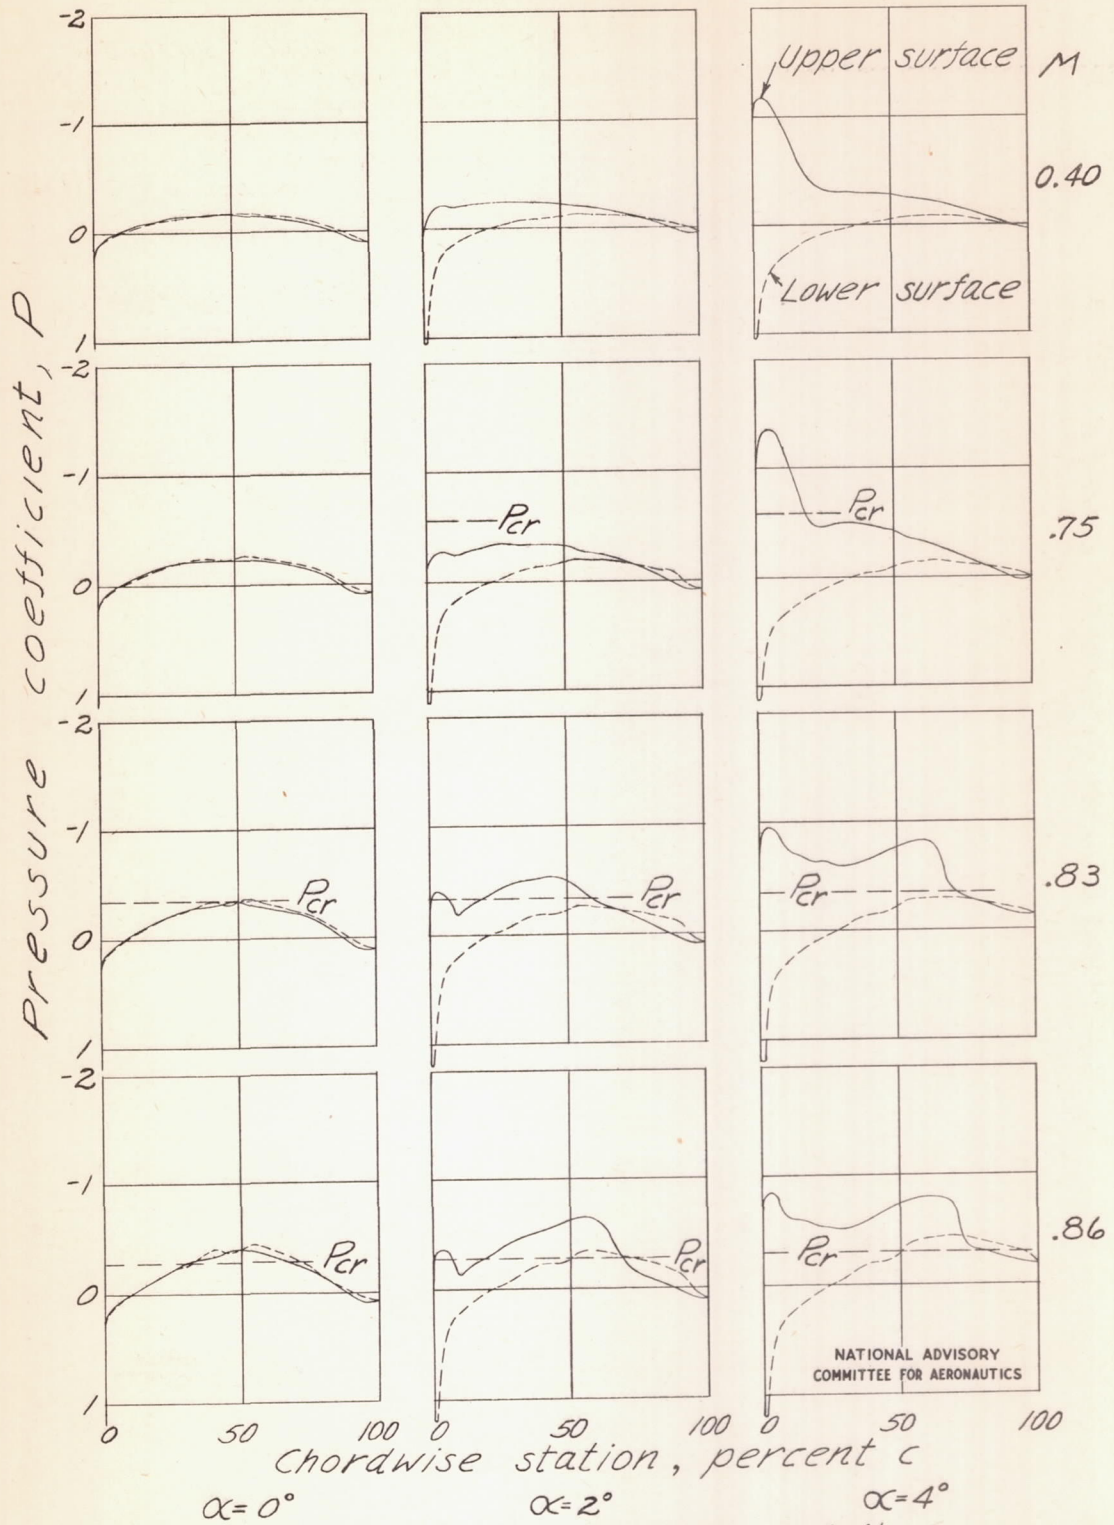 Pressure coefficient, P
-2
-1
0
1
Upper surface
Lower surface
M
0.40
-2
-1
0
1
Pcr
Pcr
.75
-2
-1
0
1
Pcr
Pcr
Pcr
.83
-2
-1
0
1
Pcr
Pcr
Pcr
.86
NATIONAL ADVISORY
COMMITTEE FOR AERONAUTICS
0 50 100 0 50 100 0 50 100
Chordwise station, percent c
α=0° α=2° α=4°